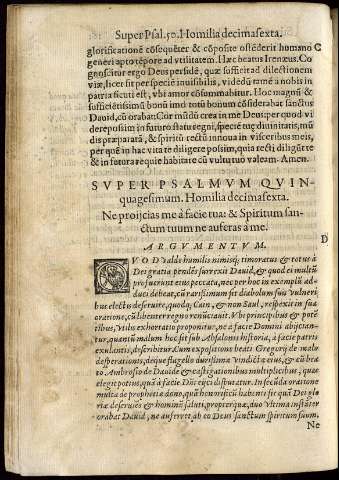 Super Psal. 50. Homilia decimasexta.
glorificationē cōsequēter & cōposite ostēderit humano C
generi apto tēpore ad vtilitatem. Hæc beatus Irenæus. Co
gnoscitur ergo Deus per fidē, quæ sufficit ad dilectionem
viæ, licet sit per speciē inuisibilis, videdū tamē à nobis in
patria sicuti est, vbi amor cōsummabitur. Hoc magnū &
sufficiētissimū bonū imò totū bonum cōsiderabat sanctus
Dauid, cū orabat: Cor mūdū crea in me Deus: per quod vi
dere possim in futuro statu regni, speciē tuę diuinitatis, mū
dis præparatā, & spiritū rectū innoua in visceribus meis,
per quē in hac vita te diligere possim, quia recti diligūt te
& in futura requie habitāt cū vultu tuo valeam. Amen.
SVPER PSALMVM QVIN-
quagesimum. Homilia decimasexta.
Ne proijcias me à facie tua: & Spiritum san-
ctum tuum ne auferas à me.
ARGVMENTVM. D
QVOD valde humilis nimisq; timoratus & totus à
Dei gratia pendēs surrexit Dauid, & quod ei multū
profuerunt eius peccata, nec per hoc in exemplū ad-
duci debeāt, cū rarissimum sit diabolum suis vulneri
bus electis deseruire, quodq; Cain, & non Saul, respexit in sua
oratione, cū libenter regno renūciauit. Vbi principibus & potē
tibus, vtilis exhortatio proponitur, ne à facie Domini abijctan-
tur, quantū malum hoc sit sub Absalonis historia, à facie patris
exulantis, describitur. Cum expositione beati Gregorij de malo
desperationis, deique flagello durissima vindicta eius, & cū bea
to Ambrosio de Dauide & castigationibus multiplicibus, quas
elegit potius, quā à facie Dñi eijci disputatur. In secūda oratione
multa de prophetiæ dono, quā hom rejicit habenti fit quā Dei glo
riæ deseruiēs & hominū saluti, propterquæ, duo vltima instāter
orabat Dauid, ne auferret ab eo Deus sanctum spiritum suum,
Ne